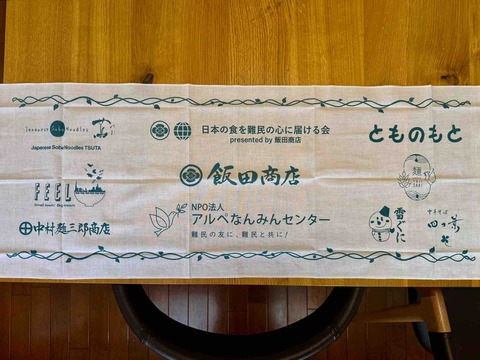 Japanese Soba Noodles 蔦
Japanese Soba Noodles TSUTA
日本の食を難民の心に届ける会
presented by 飯田商店
とものもと
飯田商店
麺
FEEL
中村麺三郎商店
NPO法人
アルペなんみんセンター
難民の友に、難民と共に!
雪ぐに
中華そば
四つ葉